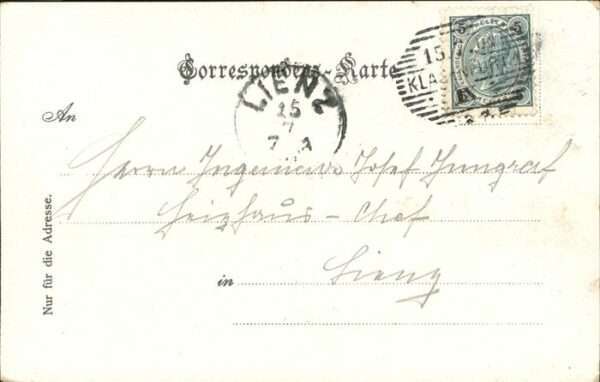 Correspondenz-Karte
5 5
15.
KLA
LIENZ
15
7
7
An
Herrn Ingenieur Josef Jungraf
Heizhaus-Chef
in Lienz
Nur für die Adresse.